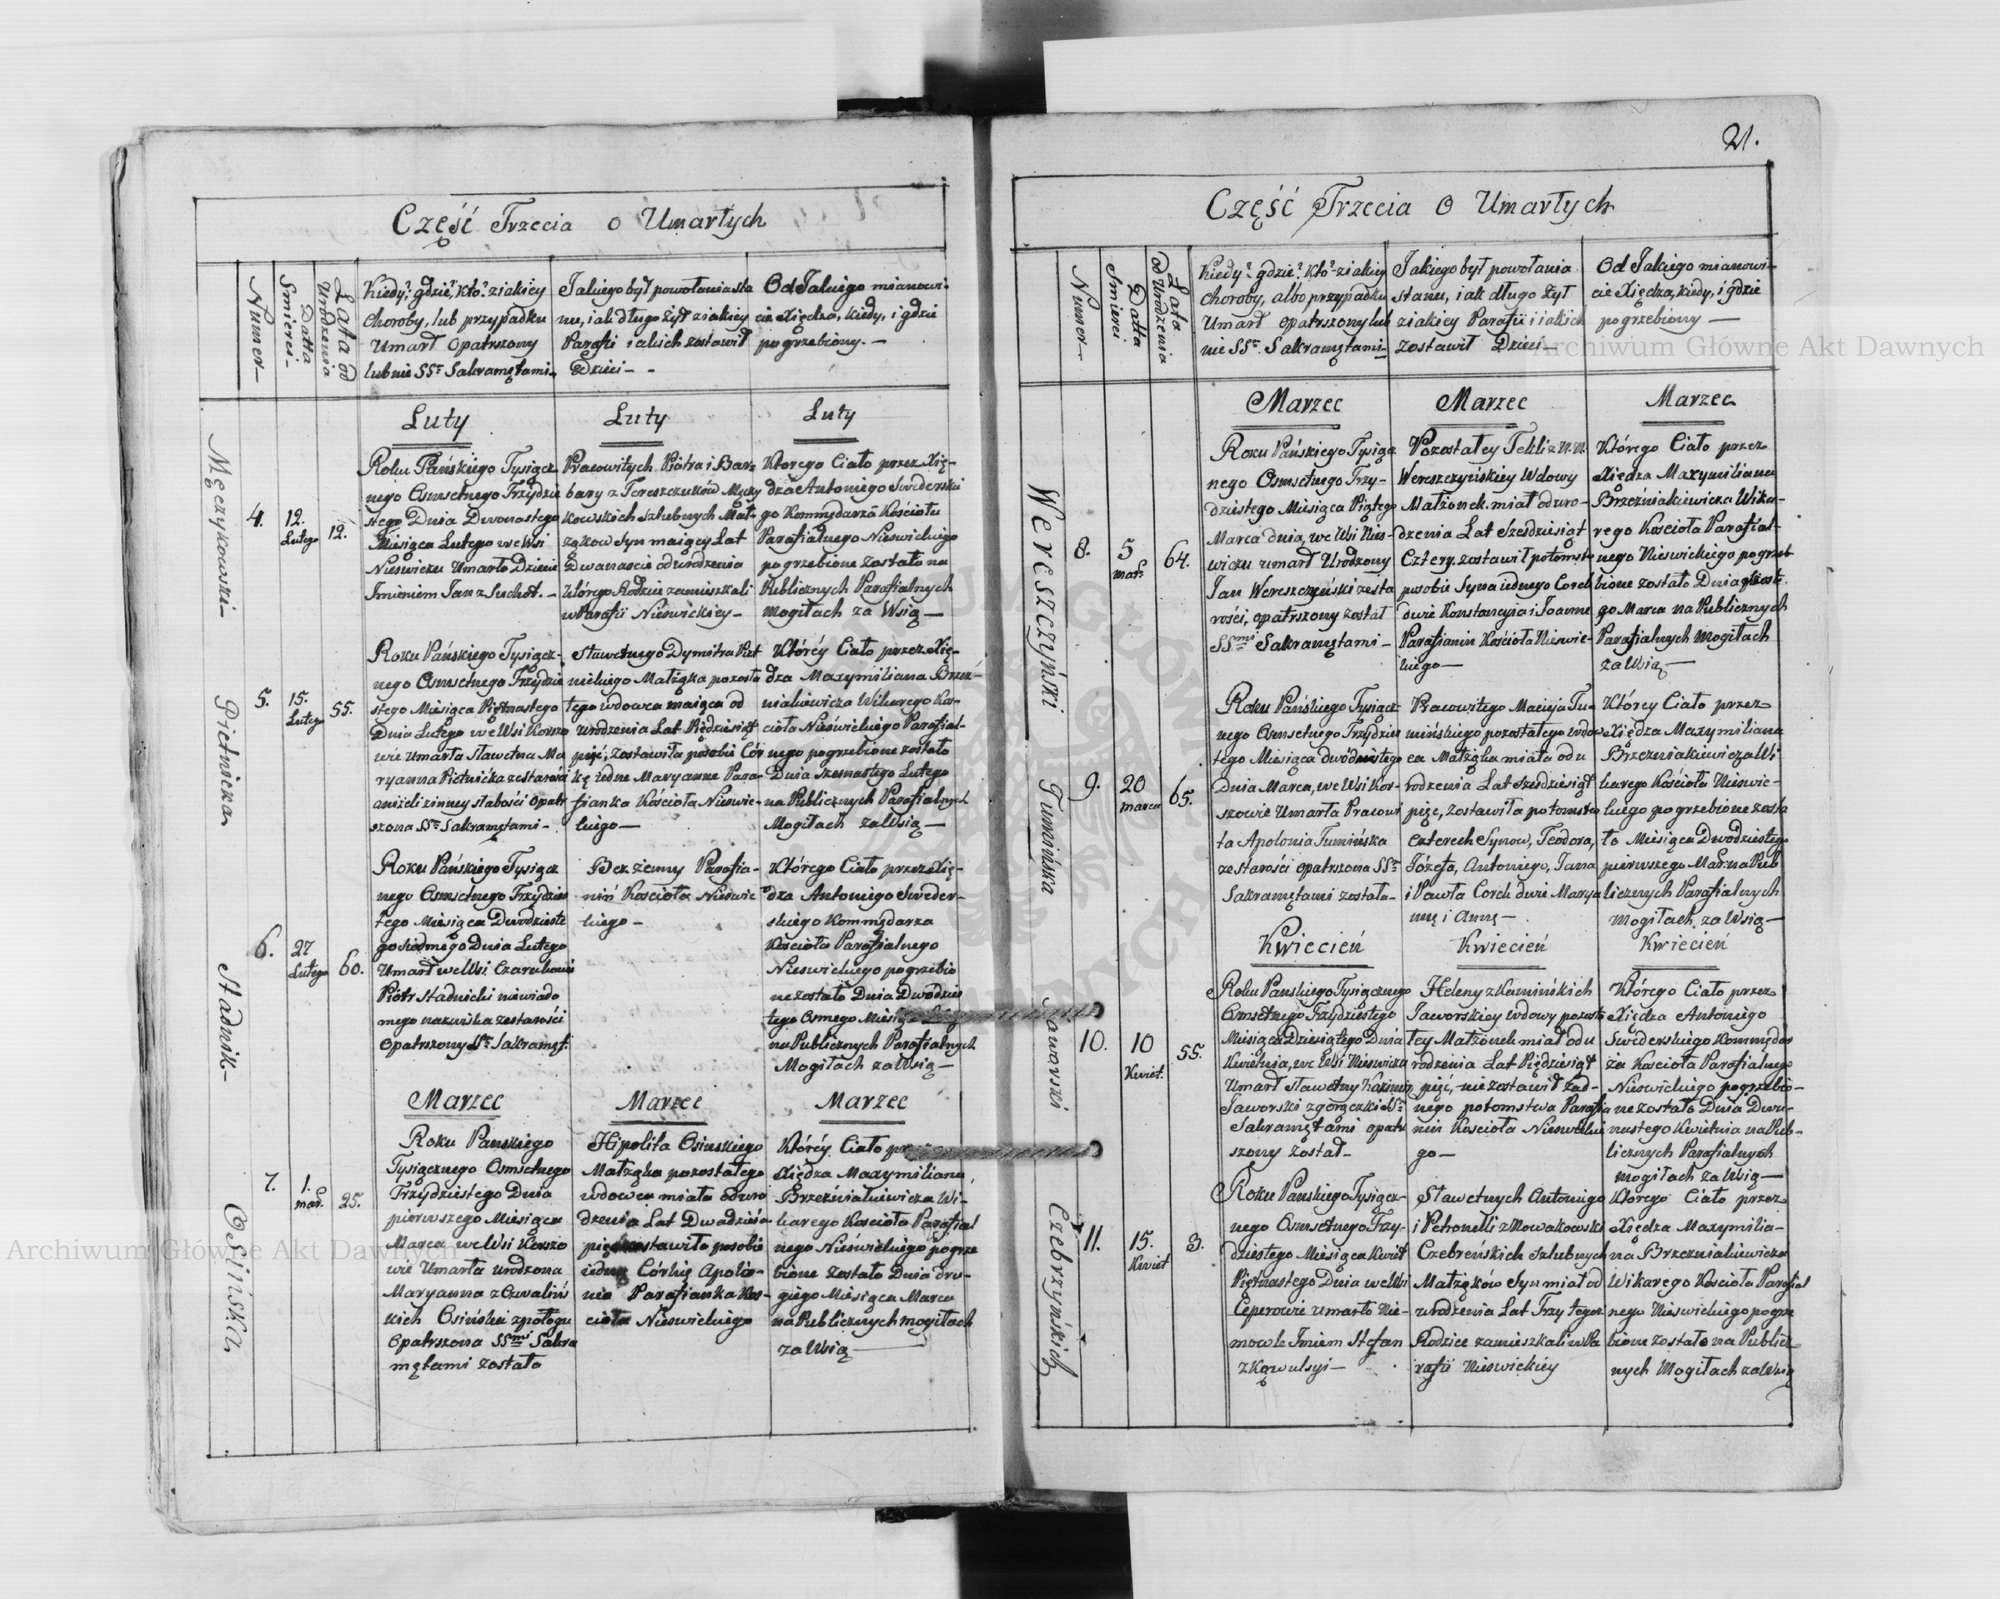 Część Trzecia o Umarłych
Numer
Datta Śmierci
Lata od Urodzenia
Kiedy? gdzie? kto? z iakiey
choroby, lub przypadku
Umarł opatrszony
lub nie SS. Sakramętami
Jakiego był powołania sta
nu, i ak długo żył z iakiey
Parafii i akich zostawił
Dzieci
Od Jakiego mianowi-
cie Xiędza, kiedy, i gdzie
pogrzebiony.
Luty
Luty
Luty
Męczykowski
4.
12. Lutego
12.
Roku Pańskiego Tysiącz
nego Osmsetnego Trzydzie
stego Dnia Dwonastego
Miesiąca Lutego we Wsi
Nieswiczu Umarło Dziecie
Imieniem Jan z Suchot.
Pracowitych Piotra i Bar
bary z Tereszczuków Męczy
kowskich szlubnych Mał-
żąkow Syn maiący Lat
Dwanascie od urodzenia
którego Rodzice zamieszkali
w Parafii Nieswickiey
Ktorego Ciało przez Xię-
dza Antoniego Swiderski
go Kommędarza Kościoła
Parafialnego Nieswickiego
pogrzebione zostało na
Publicznych Parafialnych
Mogiłach za Wsią
Pietnicka
5.
15. Lutego
55.
Roku Pańskiego Tysiącz-
nego Osmsetnego Trzydzie
stego Miesiąca Piętnastego
Dnia Lutego we Wsi Korszo
wie Umarła Sławetna Ma
ryanna Pietnicka ze starości
aniżeli z inney słabości opatr
szona SS. Sakramętami
Sławetnego Dymitra Piet
nickiego Małżąka pozosta
łego wdowca maiąca od
urodzenia Lat Pięćdziesiąt
pięć, zostawiła posobie Cór
kę iedne Maryanne Para-
fianka Kościoła Nieswic-
kiego
Którey Ciało przez Xię-
dza Maxymiliana Brzez-
niakiewicza Wikarego Ko-
scioła Nieświckiego Parafial-
nego pogrzebione zostało
Dnia Szesnastego Lutego
na Publicznych Parafialnych
Mogiłach za Wsią
Stadnik
6.
27 Lutego
60.
Roku Pańskiego Tysiącz
nego Osmsetnego Trzydzies
tego Miesiąca Dwodzieste
go siódmego Dnia Lutego
Umarł we Wsi Czarukowie
Piotr Stadnicki niewiado
mego nazwiska ze starości
opatrszony SS. Sakramęt.
Bezżenny Parafia-
nin Kościoła Nieswic
kiego
Którego Ciało przez Xię-
dza Antoniego Swider-
skiego Kommędarza
Kościoła Parafialnego
Nieswickiego pogrzebio
ne zostało Dnia Dwódzies
tego Osmego Miesiąca
na Publicznych Parafialnych
Mogiłach za Wsią
Marzec
Marzec
Marzec
Osińska
7.
1. mar.
25.
Roku Panskiego
Tysiącznego Osmsetnego
Trzydziestego Dnia
pierwszego Miesiąca
Marca we Wsi Korszo
wie Umarła urodzona
Maryanna z
kich Osińska z połogu
opatrszona SS. Sakra
mętami została
Hipolita Osinskiego
Małżąka pozostałego
wdowca miała od uro
dzenia Lat Dwadzieśa
pięć zostawiła posobie
iedną Córkię Apolo-
nia Parafianka Kos-
cioła Nieswickiego
Którey Ciało
Xiędza Maxymiliana
Brzeźniakiewicza Wi-
karego Kościoła Parafial
nego Nieświckiego pogrze
bione zostało Dnia dru-
giego Miesiąca Marca
na Publicznych mogiłach
za Wsią
21.
Część Trzecia o Umarłych
Numer
Datta Śmierci
Lata od Urodzenia
Kiedy? gdzie? kto? z iakiey
choroby, albo przypadku
Umarł opatrszony lub
nie SS. Sakramętami
Jakiego był powołania
stanu, i ak długo żył
z iakiey Parafii i iakich
zostawił Dzieci
Od Jakiego mianowi-
cie Xiędza, kiedy, i gdzie
pogrzebiony
Marzec
Marzec
Marzec
Wereszczyński
8.
5 mar.
64.
Roku Pańskiego Tysiąc
nego Osmsetnego Trzy-
dziestego Miesiąca Piątego
Marca dnia, we Wsi Nies-
wiczu umarł Urodzony
Jan Wereszczyński ze sta
rości, opatrszony został
SS. Sakramętami
Pozostałey Tekli z N.N.
Wereszczyńskiey Wdowy
Małżonek. miał od uro-
dzenia Lat Sześdziesiąt
Cztery. zostawił potomstw
posobie Syna iednego Corek
dwie Konstancyja i Joanne
Parafianin Kościoła Nieswic-
kiego
Którego Ciało przez
Xiędza Maxymiliana
Brzeźniakiewicza Wika-
rego Kościoła Parafial-
nego Nieswickiego pogrzeb
bione zostało Dnia
go Marca na Publicznych
Parafialnych Mogiłach
za Wsią
Tumińska
9.
20 marca
65.
Roku Pańskiego Tysiącz
nego Osmsetnego Trzydzies
tego Miesiąca dwódziestego
Dnia Marca, we Wsi Kor-
szowie Umarła Pracowi
ta Apolonia Tumińska
ze starości opatrszona SS.
Sakramętami została
Pracowitego Macieja Tu-
mińskiego pozostałego wdow
ca Małżąka miała od u
rodzenia Lat Sześdziesiąt
pięć, zostawiła potomstwo
czterech Synow, Teodora,
Józefa, Antoniego, Jana
i Pawła Corek dwie Marya
nnę i Annę
Którey Ciało przez
Xiędza Maxymiliana
Brzezniakiewicza Wi
karego Kościoła Nieswic-
kiego pogrzebione zosta
ło Miesiąca Dwodziestego
pierwszego Mar. na Pub
licznych Parafialnych
Mogiłach, za Wsią
Kwiecień
Kwiecień
Kwiecień
Jaworski
10.
10 Kwiet.
55.
Roku Panskiego Tysiącznego
Osmsetnego Trzydziestego
Miesiąca Dziesiątego Dnia
Kwietnia, we Wsi Nieswiczu
Umarł Sławetny Kazimirz
Jaworski z gorączki SS.
Sakramętami opatr
szony został
Heleny z Kamińskich
Jaworskiey wdowy pozosta
łey Małżonek miał od u
rodzenia Lat Pięćdziesiąt
pięć, nie zostawił żad-
nego potomstwa Parafia
nin Kościoła Nieswickie
go
Którego Ciało przez
Xiędza Antoniego
Swiderskiego Kommędar
za Kościoła Parafialnego
Nieswickiego pogrzebio-
ne zostało Dnia Dwu-
nastego Kwietnia na Pub-
licznych Parafialnych
mogiłach za Wsią
Czebrzyńskich
11.
15. Kwiet
3.
Roku Panskiego Tysiącz-
nego Osmsetnego Trzy-
dziestego Miesiąca Kwiet
Piętnastego Dnia we Wsi
Ceperowie umarło Nie-
mowle Imiem Stefan
z Kąwulsyi
Sławetnych Antoniego
i Petronelli z Nowakowskich
Czebreńskich szlubnych
Małżąków Syn miał od
urodzenia Lat Trzy tegoż
Rodzice zamieszkali w Pa
rafii Nieswickiey
Ktorego Ciało przez
Xiędza Maxymilia-
na Brzezniakiewicza
Wikarego Kościoła Parafial
nego Nieswickiego pogrze
bione zostało na Publicz
nych Mogiłach za Wsią
Archiwum Główne Akt Dawnych
Archiwum Główne Akt Dawnych